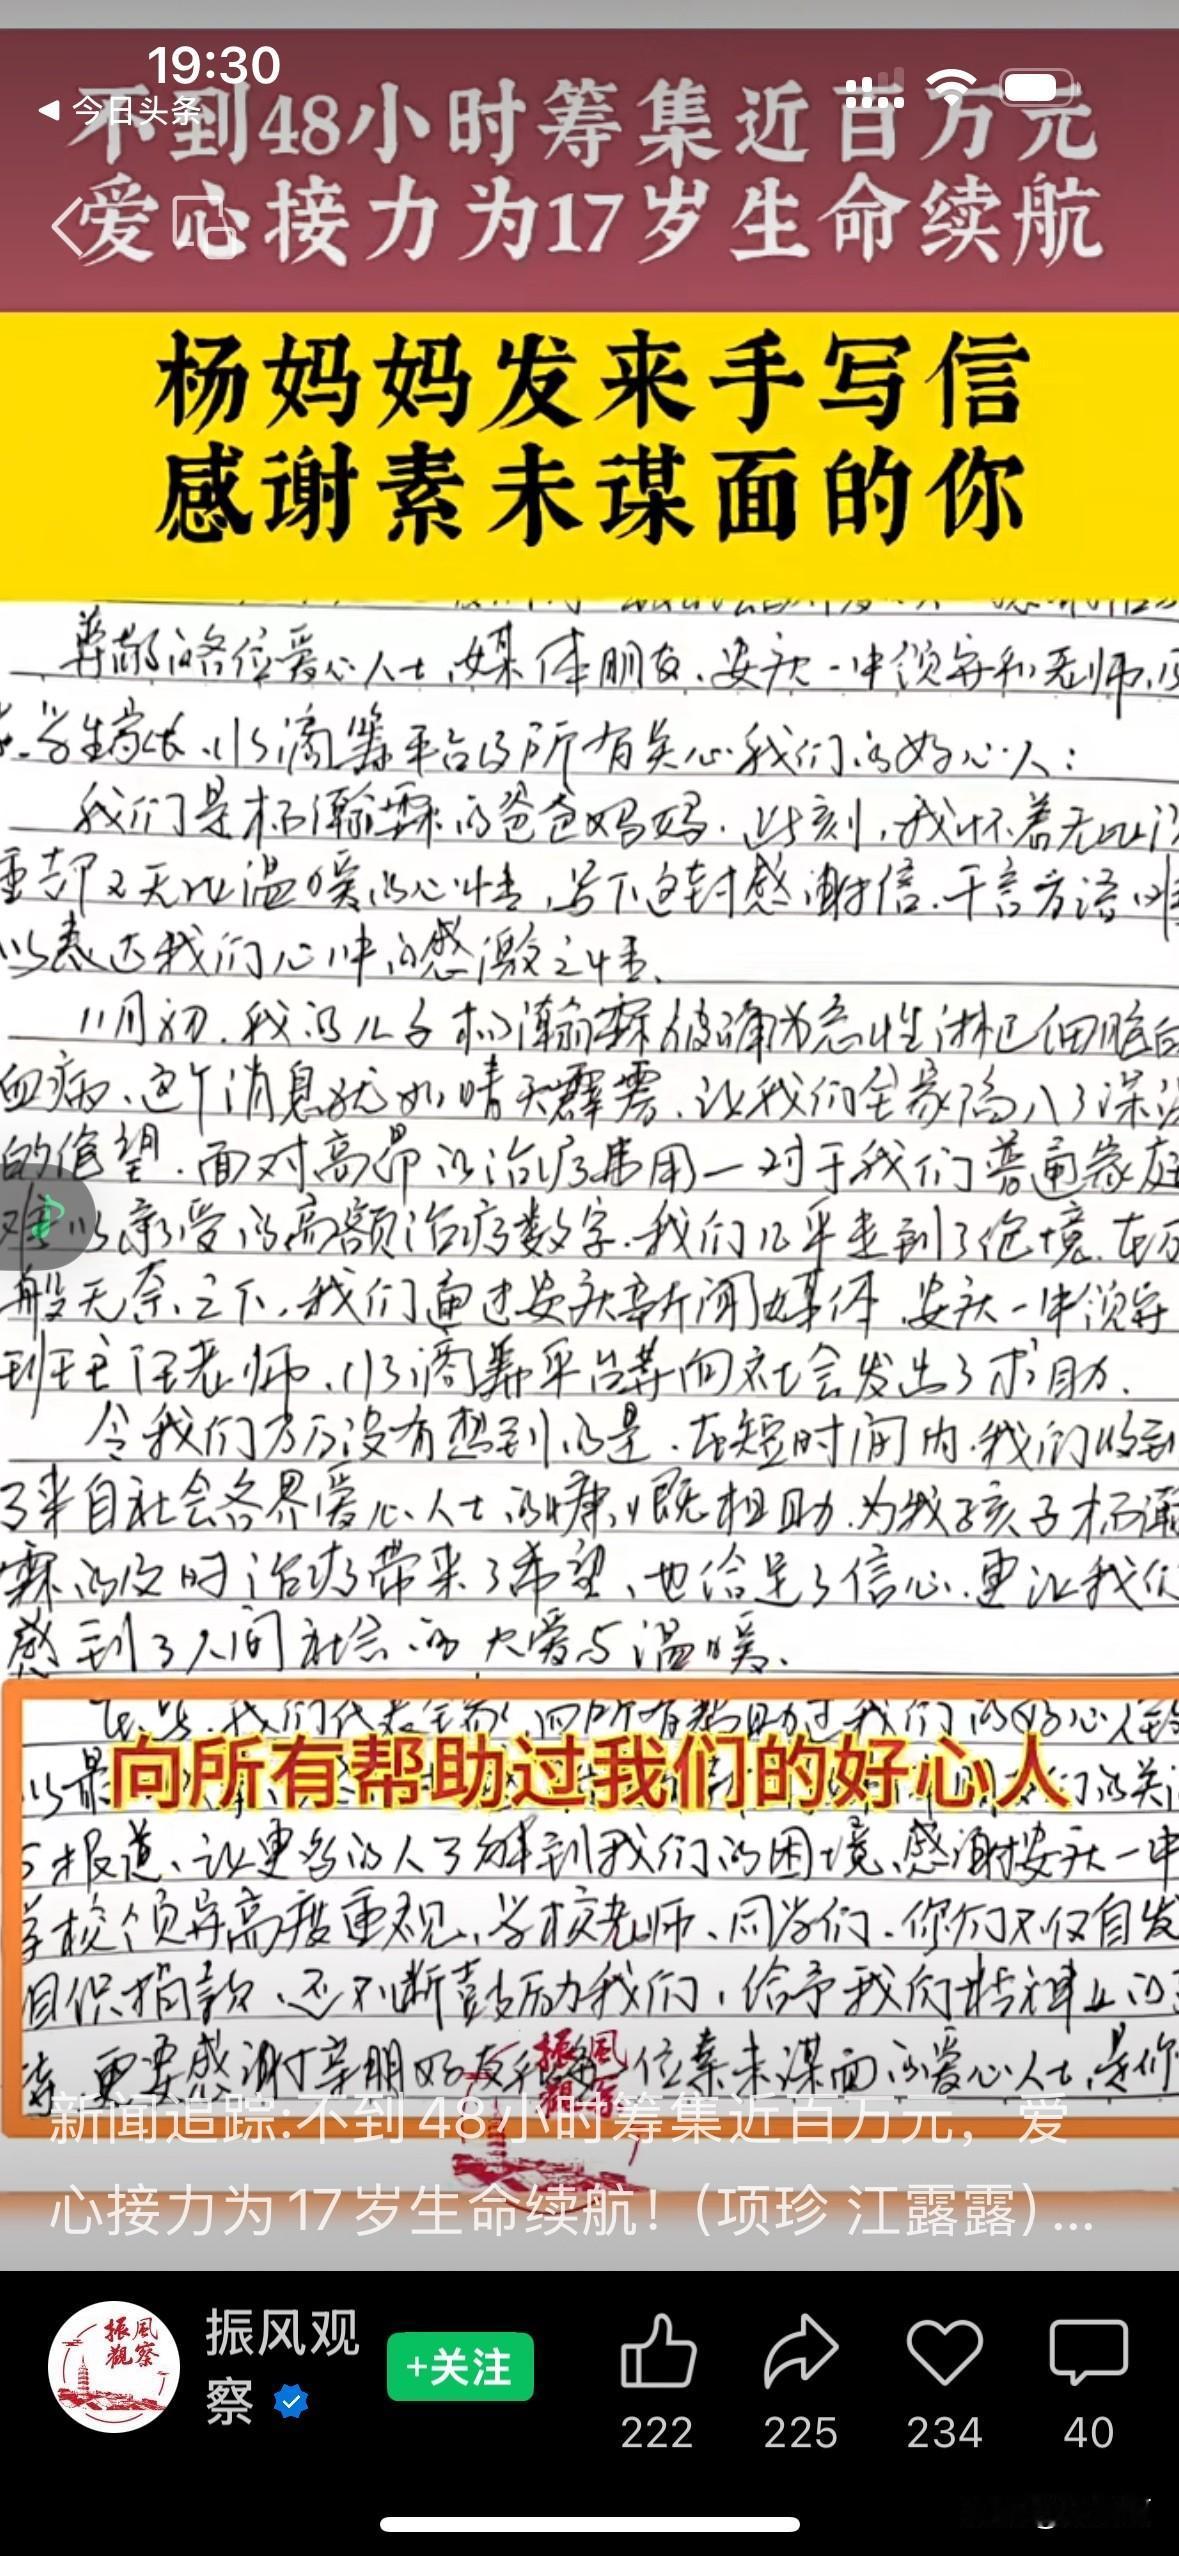 19:30
今日头条
不到48小时筹集近百万元
爱心接力为17岁生命续航
杨妈妈发来手写信
感谢素未谋面的你
尊敬的各位爱心人士、媒体朋友、安庆一中领导和老师、
学生家长、水滴筹平台的所有关心我们的好心人：
我们是杨瀚霖的爸爸妈妈。此刻，我怀着无比沉
重却又无比温暖的心情，写下这封感谢信。千言万语难
以表达我们心中的感激之情。
11月初，我的儿子杨瀚霖被确为急性淋巴细胞白
血病、这个消息犹如晴天霹雳、让我们全家陷入了深深
的绝望。面对高昂的治疗费用一对于我们普通家庭
难以承受的高额治疗数字。我们几乎走到了绝境。在万
般无奈之下，我们通过安庆新闻媒体、安庆一中领导
班主任老师、水滴筹平台等向社会发出了求助.
令我们万万没有想到的是、在短时间内、我们收到
了来自社会各界爱心人士的慷慨相助.为我孩子杨瀚
霖的及时治疗带来了希望、也给足了信心.更让我们
感到了人间社会的大爱与温暖.
在此、我们代表全家、向所有帮助过我们的好心人致
以最
向所有帮助过我们的好心人
们的关注
与报道、让更多的人了解到我们的困境、感谢安庆一中
学校领导高度重视、学校老师、同学们、你们不仅自发
组织捐款、还不断鼓励我们，给予我们精神上的
更要感谢亲朋好友和每一位素未谋面的爱心人士、是你
振风
觀察
新闻追踪:不到48小时筹集近百万元，爱
心接力为17岁生命续航！(项珍 江露露)...
振風
觀察
振风观
察
+关注
222
225
234
40